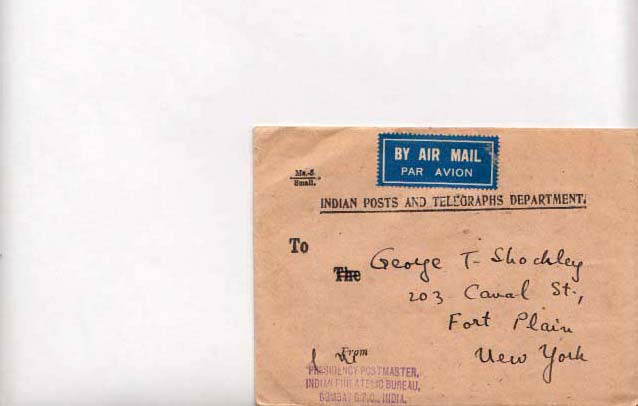 BY AIR MAIL
PAR AVION
Ms.-5.
Small.
INDIAN POSTS AND TELEGRAPHS DEPARTMENT.
To
The
George T. Shockley
203 Canal St.,
Fort Plain
New York
From
PRESIDENCY POSTMASTER,
INDIAN PHILATELIC BUREAU,
BOMBAY G.P.O., INDIA.